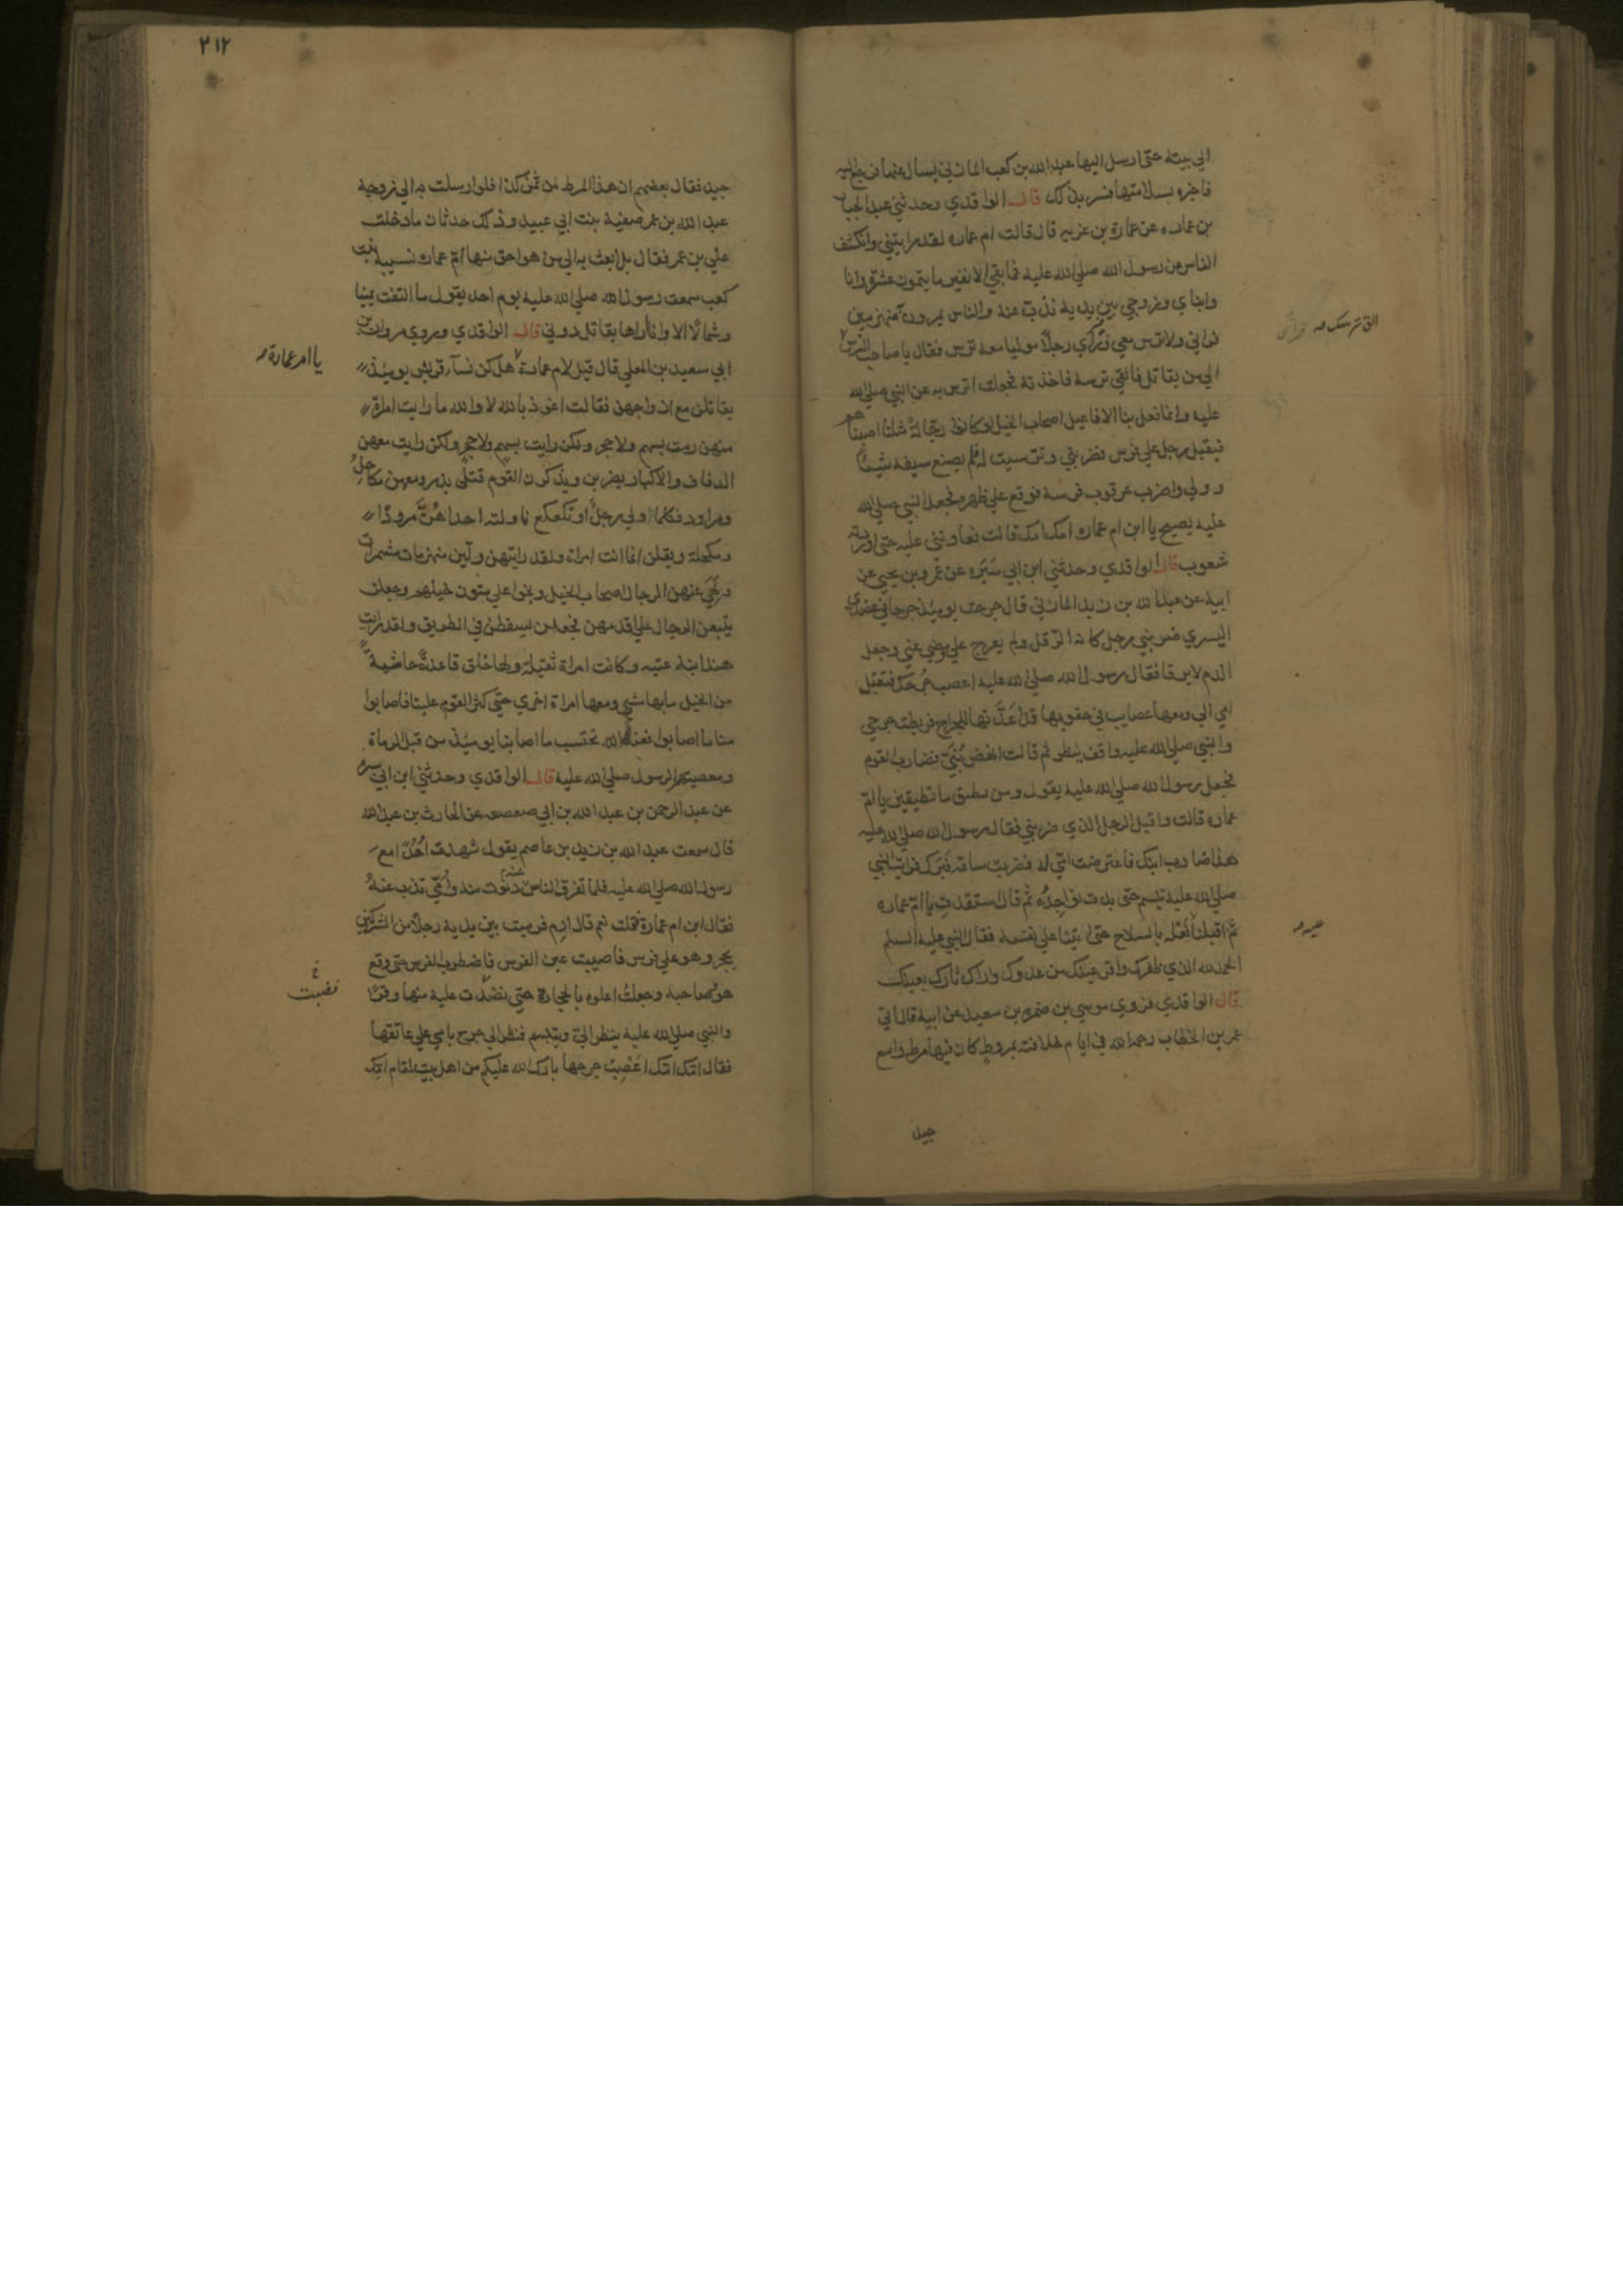 الي بيته حتى ارسل اليها عبد الله بن كعب المازني يسال عنها فرجع اليه
فاخبره بسلامتها فسر بذلك قال الواقدي وحدثني عبد الجبار
بن عماره عن عمارة بن غزيه قال قالت ام عماره لقد رايتني وانكشف
الناس عن رسول الله صلي الله عليه فما بقي الا نفير ما يتمون عشرة وانا
وابناي وزوجي بين يديه نذب عنه والناس يمرون منهزمين
فراني ولا ترس معي وراي رجلا موليا معه ترس فقال يا صاحب الترس
الي من يقاتل فالقي ترسه فاخذته فجعلت اترس به عن النبي صلي الله
عليه وانما فعل بنا الافاعيل اصحاب الخيل لو كانوا رجالة مثلنا اصبناهم
فيقبل رجل علي فرس فضربني وترست له فلم يصنع سيفه شيئا
وولي واضرب عرقوب فرسه فوقع علي ظهره فجعل النبي صلي الله
عليه يصيح يا ابن ام عماره امك امك قالت فعاونني عليه حتى اوردته
شعوب قال الواقدي وحدثني ابن ابي سبره عن عمرو بن يحيي عن
ابيه عن عبد الله بن زيد المازني قال جرحت يومئذ جرحا في عضدي
اليسري ضربني رجل كانه الرقل ولم يعرج علي ومضي عني وجعل
الدم لا يرقا فقال رسول الله صلي الله عليه اعصب جرحك فتقبل
امي الي ومعها عصايب في حقويها قد اعدتها للجراح فربطت جرحي
والنبي صلي الله عليه واقف ينظر ثم قالت انهض بني فضارب القوم
فجعل رسول الله صلي الله عليه يقول ومن يطيق ما تطيقين يا ام
عماره قالت واقبل الرجل الذي ضربني فقال رسول الله صلي الله عليه
هذا ضارب ابنك فاعترضت اتي له فضربت ساقه فبرك فرايت النبي
صلي الله عليه تبسم حتى بدت نواجذه ثم قال استقدت يا ام عماره
ثم اقبلنا نعله بالسلاح حتى اتينا علي نفسه فقال النبي عليه السلم
الحمد لله الذي ظفرك واقر عينك من عدوك واراك ثارك بعينك
قال الواقدي فروي موسي بن ضمره بن سعيد عن ابيه قال اتي
عمر بن الخطاب رحمه الله في ايام خلافته بمروط كان فيها مرط واسع
جيد
الق ترسك
عليه
٢١٢
جيد فقال بعضهم ان هذا المرط من ثمن كذا فلو ارسلت به الي زوجة
عبد الله بن عمر صفية بنت ابي عبيد وذلك حدثان ما دخلت
علي بن عمر فقال بل ابعث به الي من هو احق منها ام عماره نسيبة بنت
كعب سمعت رسول الله صلي الله عليه يوم احد يقول ما التفت يمينا
وشمالا الا وانا اراها يقاتل دوني قال الواقدي وروي مروان بن
ابي سعيد بن المعلي قال قيل لام عمارة هل كن نسآء قريش يومئذ
يقاتلن مع ازواجهن فقالت اعوذ بالله لا والله ما رايت امراة
منهن رمت بسهم ولا حجر ولكن رايت بسهم ولا حجر ولكن رايت معهن
الدفاف والاكبار يضربن ويذكرن القوم قتلى بدر ومعهن مكاحل
ومراود فكلما ولي رجل او تكعكع ناولته احداهن مرودا
ومكحلة ويقلن انما انت امراة ولقد رايتهن ولين منهزمات مشمرات
ولهي عنهن الرجال اصحاب الخيل ونجوا علي متون خيلهم وجعلن
يتبعن الرجال علي اقدمهن فجعلن يسقطن في الطريق ولقد رايت
هندا بنة عتبه وكانت امراة ثقيلة ولها خلق قاعدة خاشية
من الخيل ما بها مشي ومعها امراة اخري حتى كثر القوم علينا فاصابوا
منا ما اصابوا فعند الله نحتسب ما اصابنا يومئذ من قبل الرماة
ومعصيتهم الرسول صلي الله عليه قال الواقدي وحدثني ابن ابي سبره
عن عبد الرحمن بن عبد الله بن ابي صعصعه عن الحارث بن عبد الله
قال سمعت عبد الله بن زيد بن عاصم يقول شهدت احدا مع
رسول الله صلي الله عليه فلما تفرق الناس عنه دنوت منه وامي تذب عنه
فقال ابن ام عمارة قلت نعم قال ارم فرميت بين يديه رجلا من المشركين
بحجر وهو علي فرس فاصيبت عين الفرس فاضطرب الفرس حتى وقع
هو وصاحبه وجعلت اعلوه بالحجارة حتى نضدت عليه منها وقرا
والنبي صلي الله عليه ينظر الي ويتبسم فنظر الي جرح بامي علي عاتقها
فقال امك امك اعصب جرحها بارك الله عليكم من اهل بيت لمقام امك
يا ام عمارة